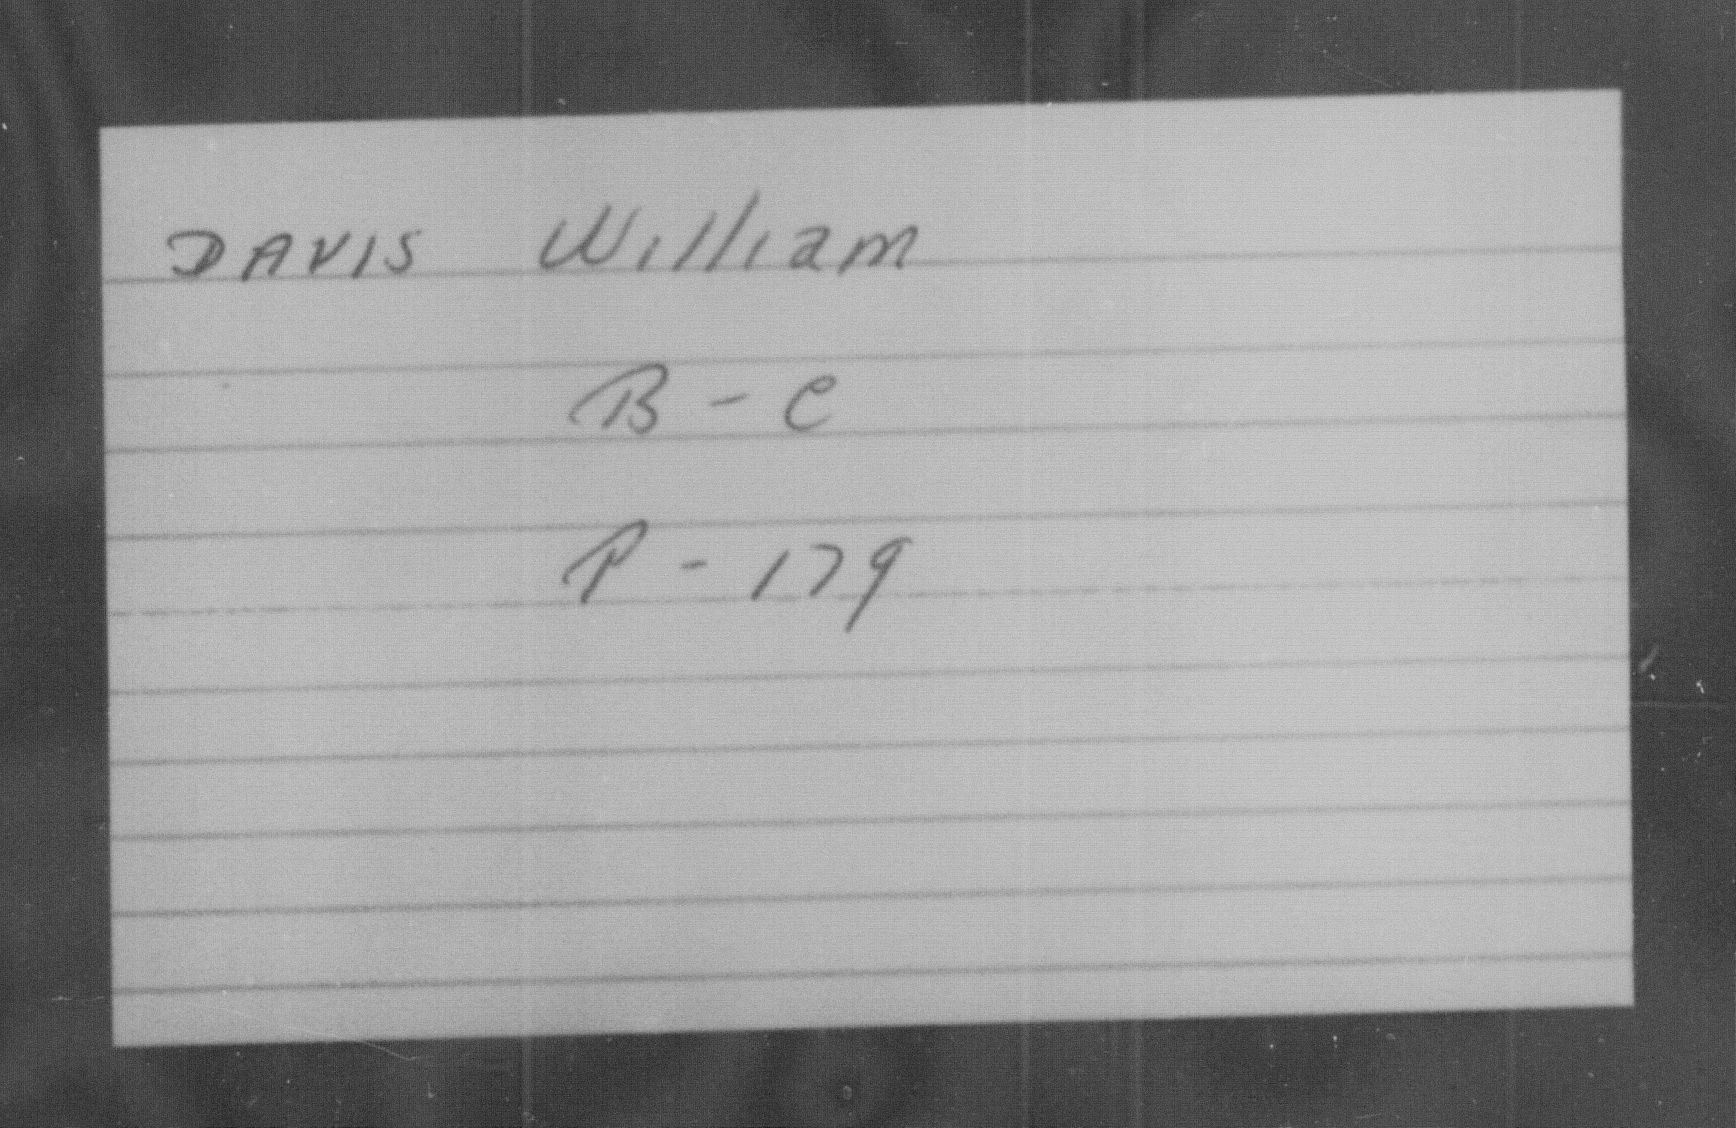 DAVIS William
B - C
P - 179